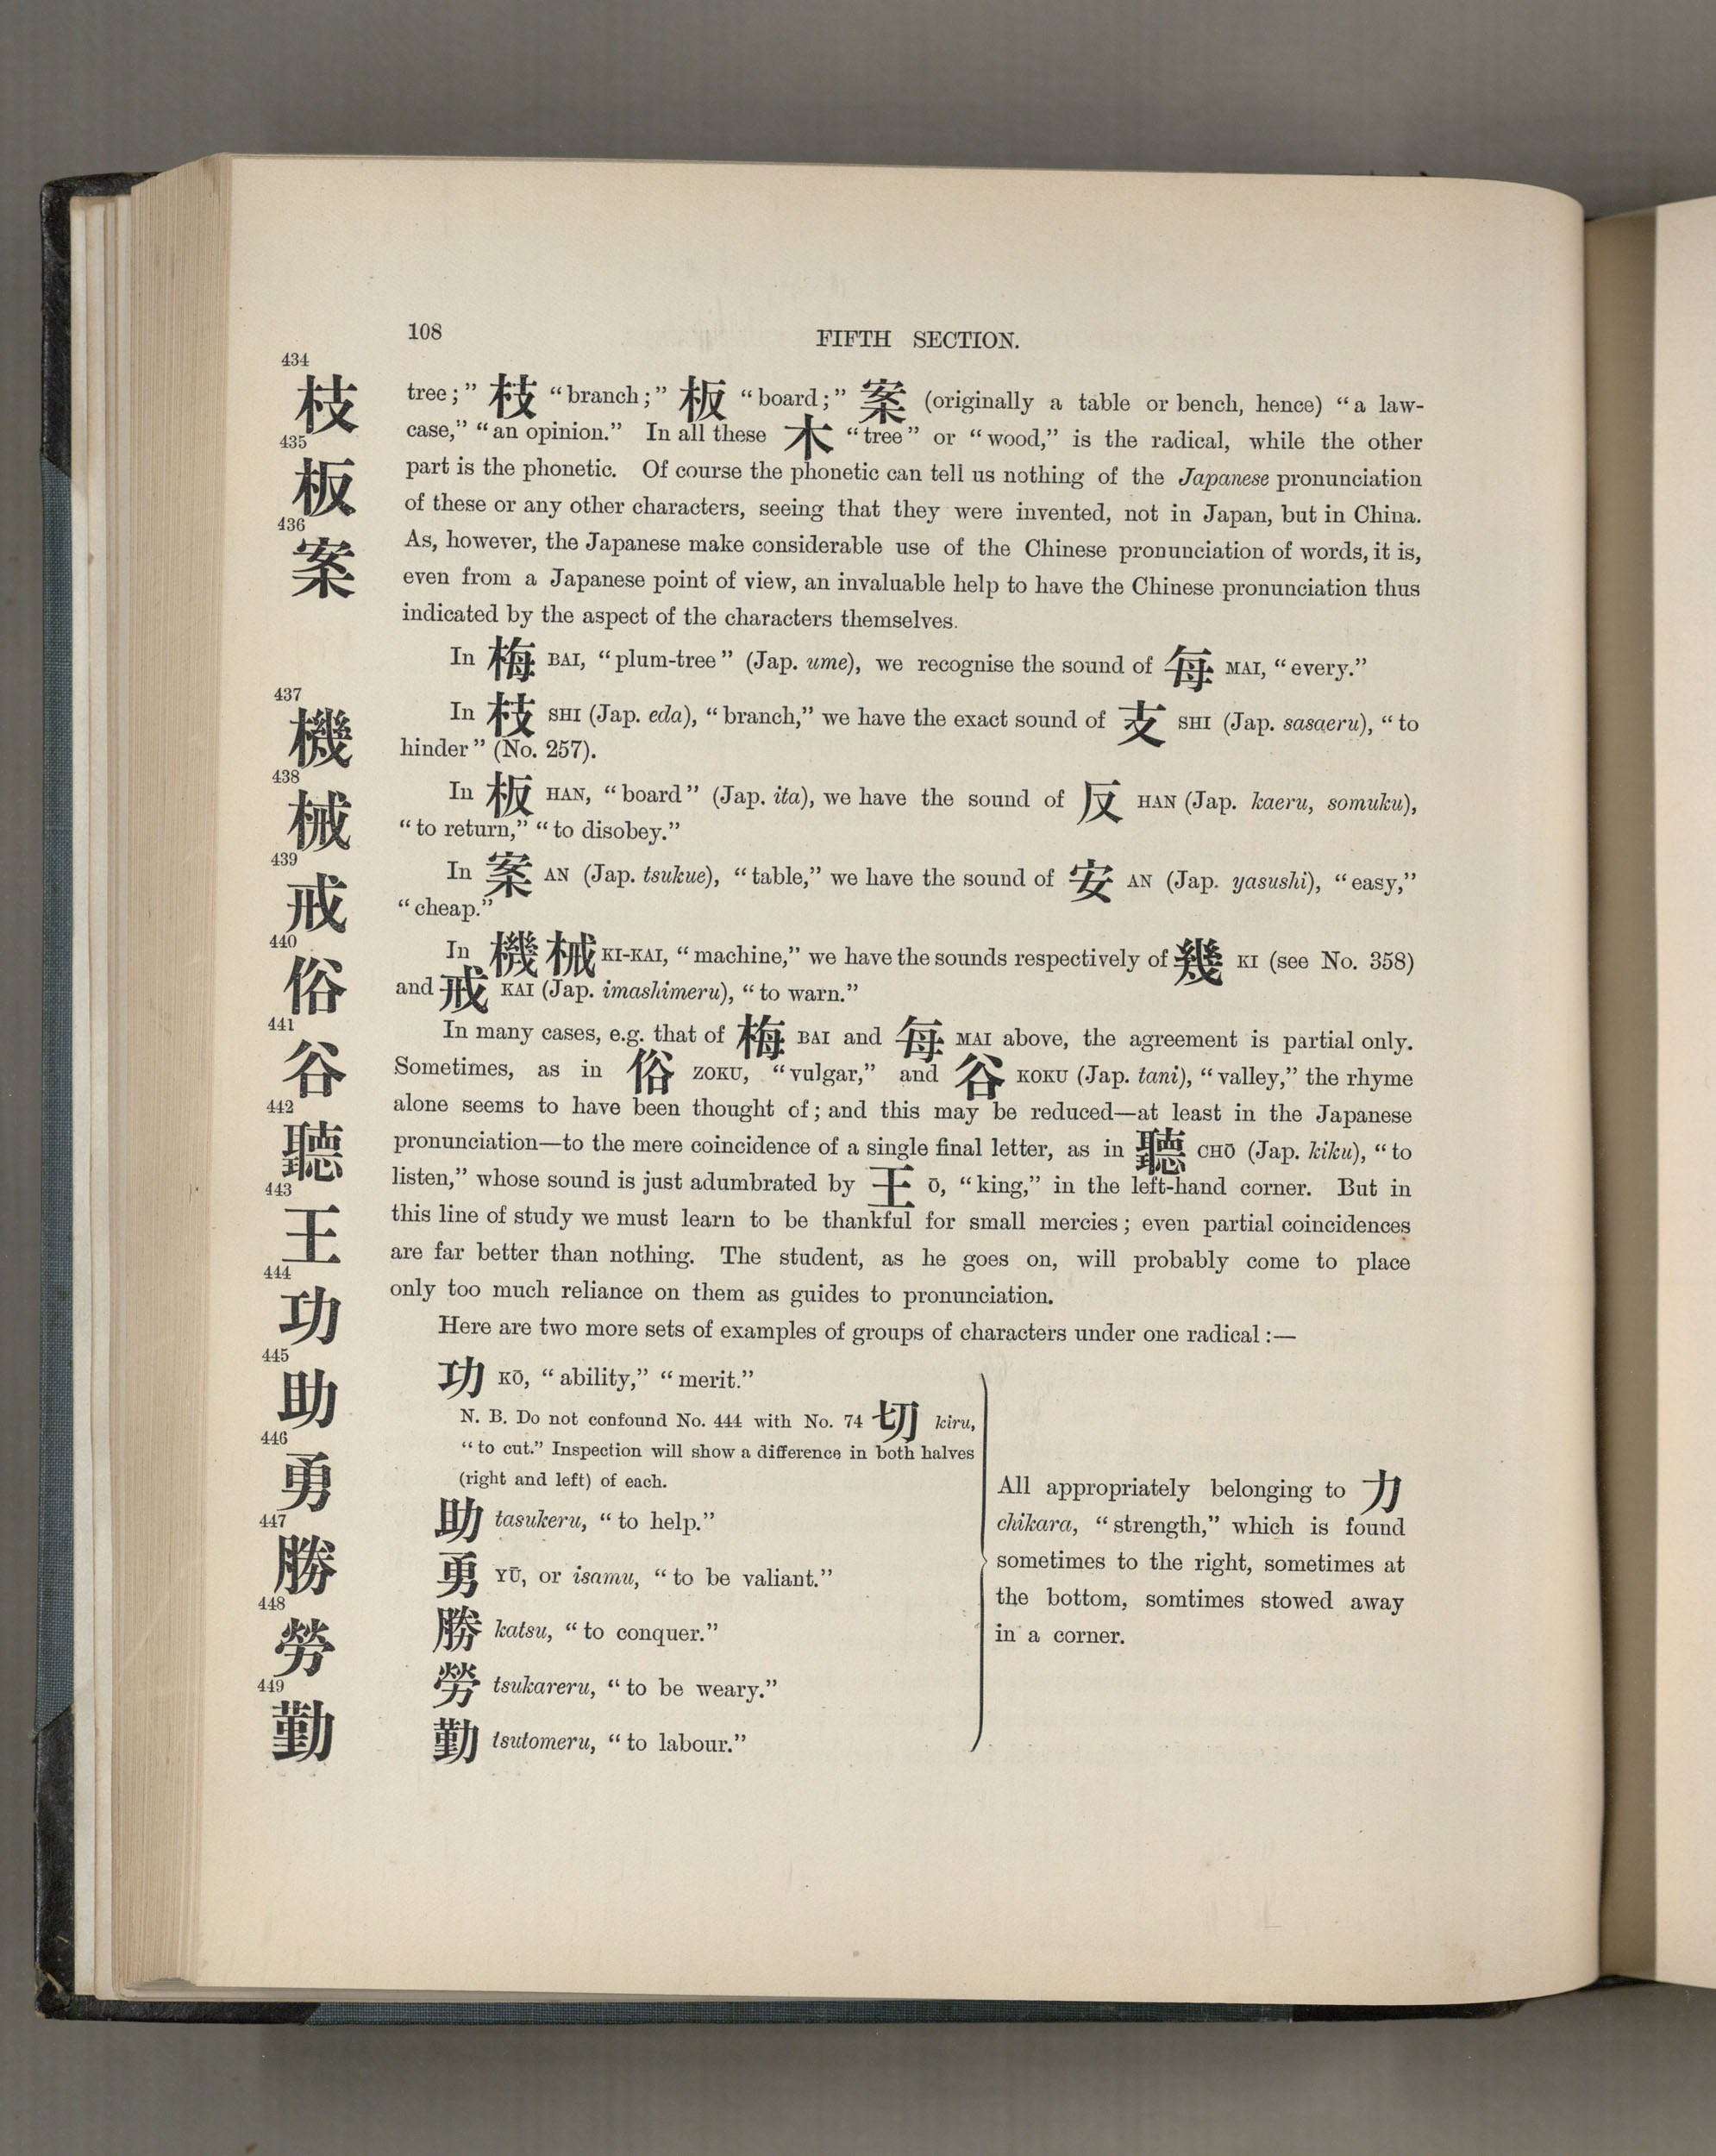 108
FIFTH SECTION.
434
枝
435
板
436
案
437
機
438
械
439
戒
440
俗
441
谷
442
聽
443
王
444
功
445
助
446
勇
447
勝
448
勞
449
勤
tree;” 枝 “branch;” 板 “board;” 案 (originally a table or bench, hence) “a law-
case,” “an opinion.” In all these 木 “tree” or “wood,” is the radical, while the other
part is the phonetic. Of course the phonetic can tell us nothing of the Japanese pronunciation
of these or any other characters, seeing that they were invented, not in Japan, but in China.
As, however, the Japanese make considerable use of the Chinese pronunciation of words, it is,
even from a Japanese point of view, an invaluable help to have the Chinese pronunciation thus
indicated by the aspect of the characters themselves.
In 梅 BAI, “plum-tree” (Jap. ume), we recognise the sound of 每 MAI, “every.”
In 枝 SHI (Jap. eda), “branch,” we have the exact sound of 支 SHI (Jap. sasaeru), “to
hinder” (No. 257).
In 板 HAN, “board” (Jap. ita), we have the sound of 反 HAN (Jap. kaeru, somuku),
“to return,” “to disobey.”
In 案 AN (Jap. tsukue), “table,” we have the sound of 安 AN (Jap. yasushi), “easy,”
“cheap.”
In 機械 KI-KAI, “machine,” we have the sounds respectively of 幾 KI (see No. 358)
and 戒 KAI (Jap. imashimeru), “to warn.”
In many cases, e.g. that of 梅 BAI and 每 MAI above, the agreement is partial only.
Sometimes, as in 俗 ZOKU, “vulgar,” and 谷 KOKU (Jap. tani), “valley,” the rhyme
alone seems to have been thought of; and this may be reduced—at least in the Japanese
pronunciation—to the mere coincidence of a single final letter, as in 聽 CHŌ (Jap. kiku), “to
listen,” whose sound is just adumbrated by 王 Ō, “king,” in the left-hand corner. But in
this line of study we must learn to be thankful for small mercies; even partial coincidences
are far better than nothing. The student, as he goes on, will probably come to place
only too much reliance on them as guides to pronunciation.
Here are two more sets of examples of groups of characters under one radical:—
功 KŌ, “ability,” “merit.”
N. B. Do not confound No. 444 with No. 74 切 kiru,
“to cut.” Inspection will show a difference in both halves
(right and left) of each.
助 tasukeru, “to help.”
勇 YŪ, or isamu, “to be valiant.”
勝 katsu, “to conquer.”
勞 tsukareru, “to be weary.”
勤 tsutomeru, “to labour.”
All appropriately belonging to 力
chikara, “strength,” which is found
sometimes to the right, sometimes at
the bottom, somtimes stowed away
in a corner.